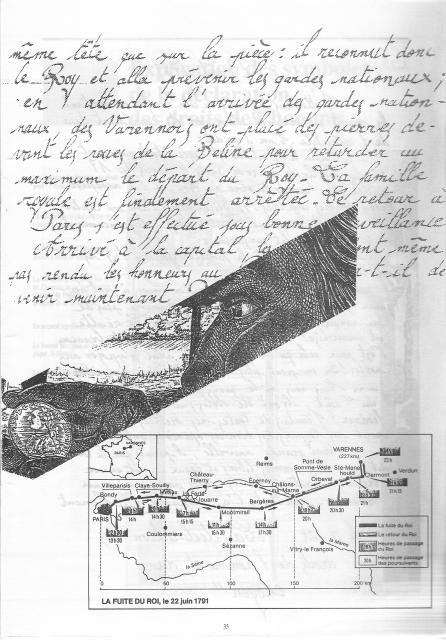 même tête que sur la pièce : il reconnut donc
le Roy et alla prévenir les gardes nationaux ;
en attendant l'arrivée des gardes nation-
naux, des Varennois ont placé des pierres de-
vant les roues de la Beline pour retarder au
maximum le départ du Roy. La famille
royale est finalement arrêtée. Le retour à
Paris s'est effectué sous bonne
Arrivé à la capital, les ont même
pas rendu les honneurs au -t-il de
venir maintenant
VARENNES
(227 km)
22 h
Reims
Pont de
Somme-Vesle
Ste-Mene
hould
Verdun
Clermont
21 h 15
Château-
Thierry
Epernay
Châlons-
sur-Marne
Orbeval
21 h
Villeparisis
Claye-Souilly
Meaux
La Ferté-
Jouarre
Bergères
20 h 30
Bondy
Montmirail
20 h
PARIS
14 h
14 h 30
15 h 15
17 h 30
13 h 30
Coulommiers
Sézanne
Vitry-le-François
la Marne
la Seine
La fuite du Roi
Le retour du Roi
Heures de passage
du Roi
Heures de passage
des poursuivants
0
50
100
150
200 km
LA FUITE DU ROI, le 22 juin 1791
35